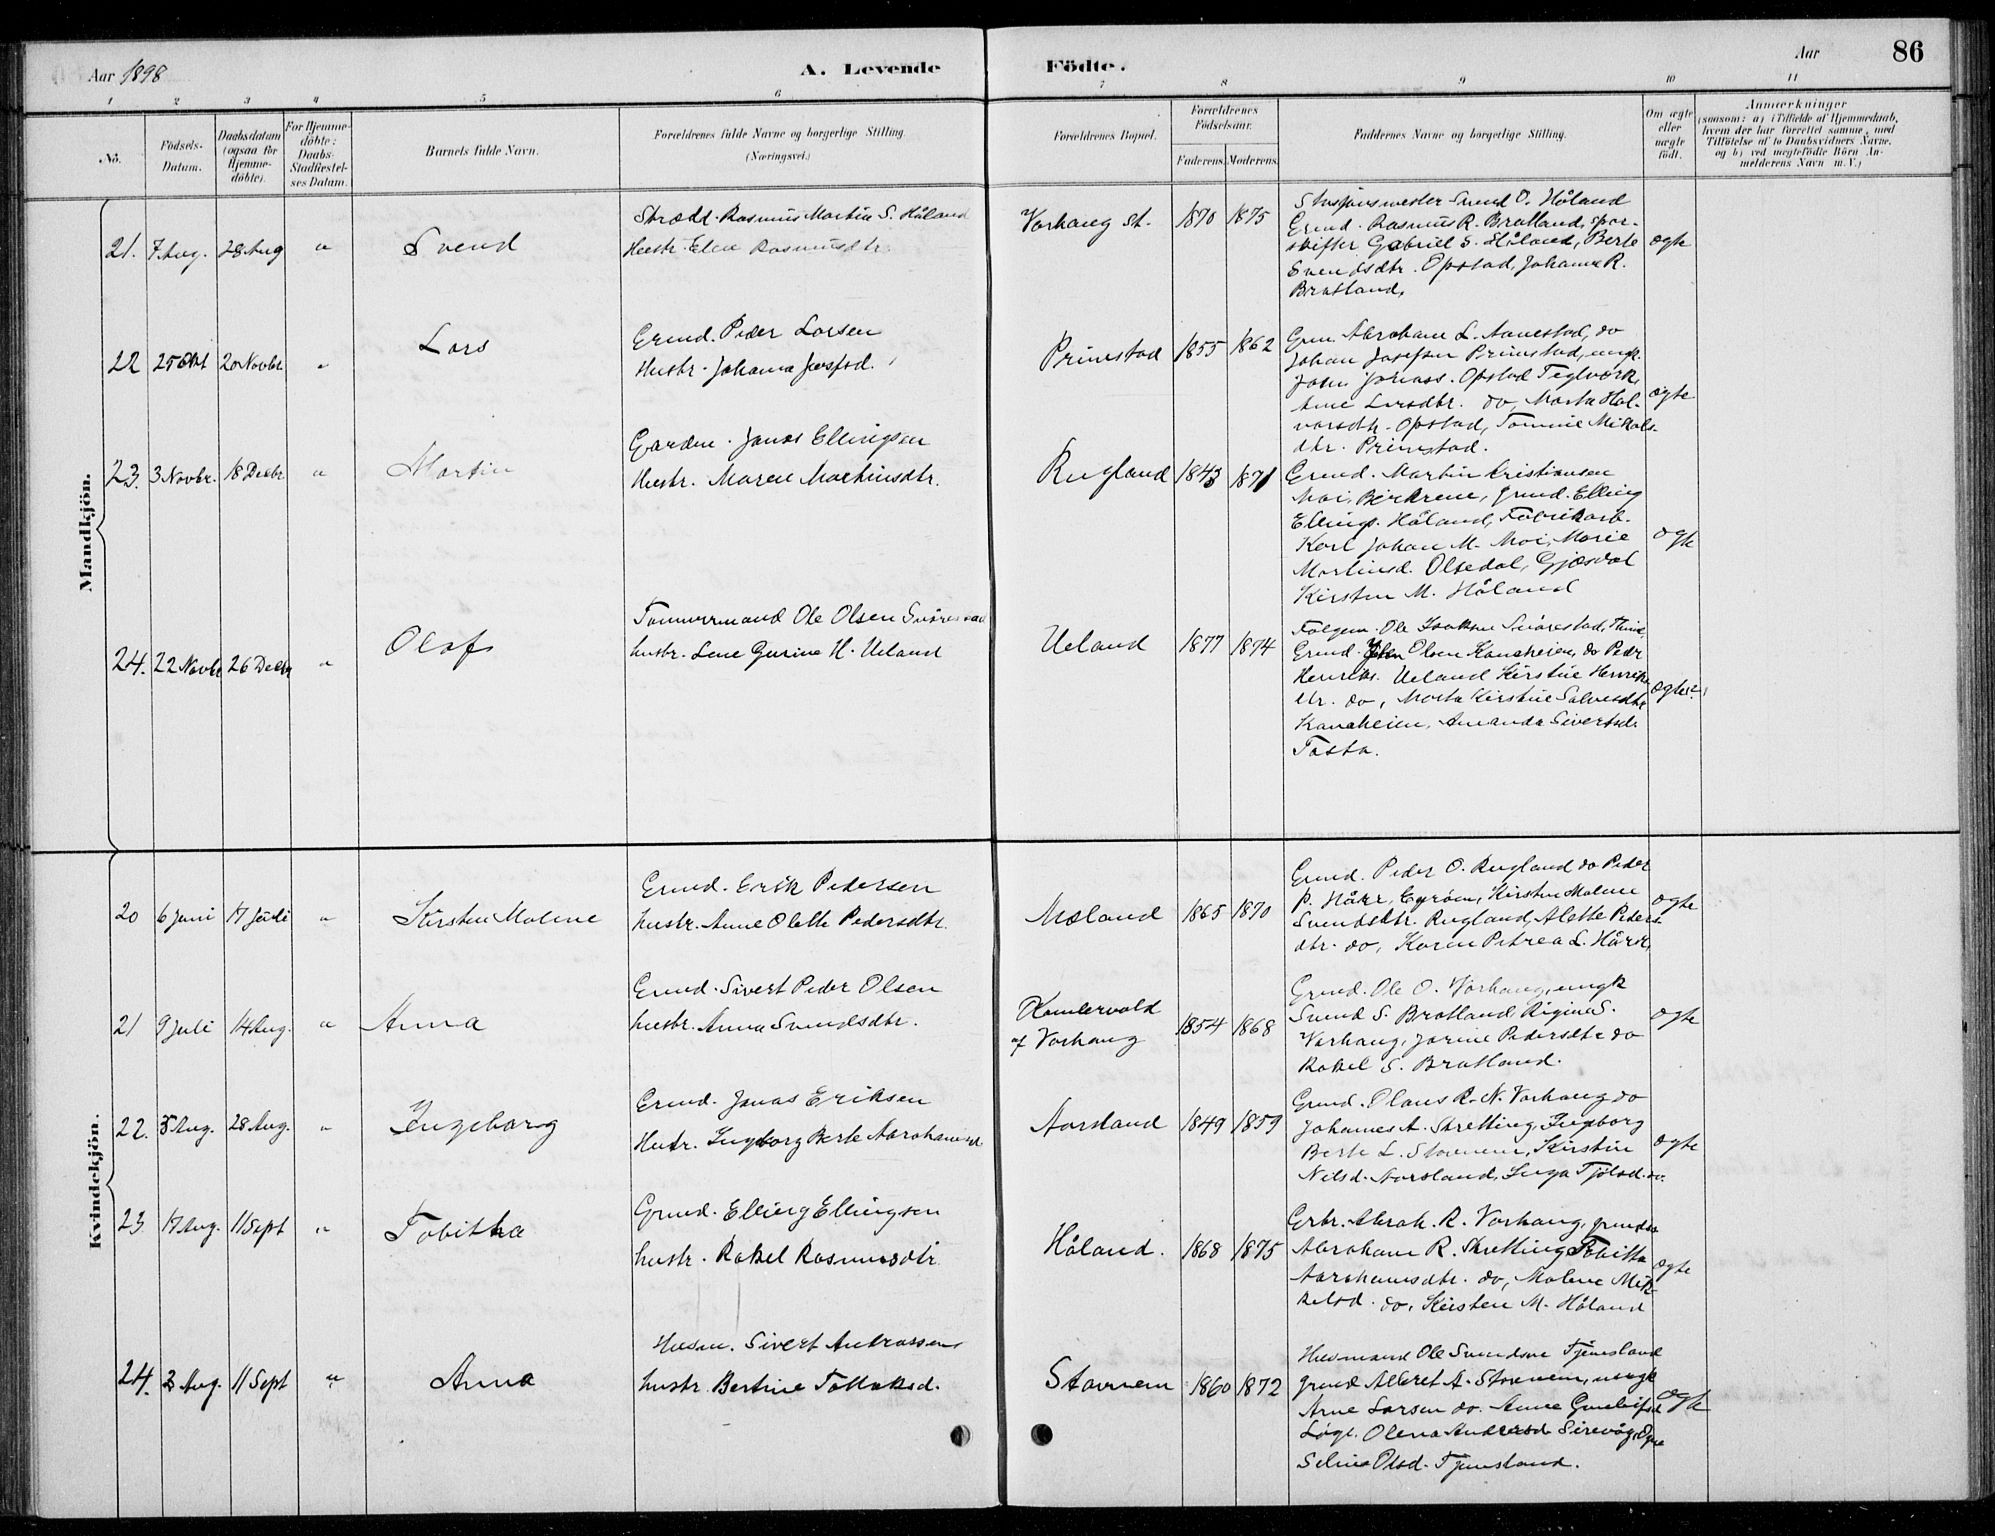 Aar 1898
A. Levende
Födte.
Aar
86
1 2 3 4 5 6 7 8 9 10 11
No.
Födsels-Datum.
Daabsdatum (ogsaa for Hjemme-döbte).
For Hjemme-döbte: Daabs-Stadfæstel-ses Datum.
Barnets fulde Navn.
Forældrenes fulde Navne og borgerlige Stilling.
(Næringsvei.)
Forældrenes Bopæl.
Forældrenes Födselsaar.
Faderens. Moderens.
Faddernes Navne og borgerlige Stilling.
Om ægte eller uægte födt.
Anmærkninger
(saasom: a) i Tilfælde af Hjemmedaab,
hvem der har forrettet samme, med
Tilföielse af to Daabsvidners Navne,
og b) ved uægtefödte Börn An-
melderens Navn m. V.)
Mandkjön.
21. 7 Aug. 28 Aug " Svend
Strædd. Rasmus Martin S. Håland
Hustr. Elen Rasmusdtr.
Varhaug st. 1870 1875
Svend O. Håland
Grmd. Rasmus R. Bratland, spor-
skifter Gabriel S. Håland, Berte
Svendsdtr. Opstad, Johanne R.
Bratland,
ægte
22 25 Okt 20 Novbr. " Lars
Grmd. Peder Larsen
Hustr. Johanna Josefsd.
Primstad 1855 1862
Grm. Abraham L. Aanestad, do
Johan Josefsen Primstad, ungk.
John Jonass. Opstad Teglværk,
Ane Larsdtr. do, Marta Hal-
vorsdtr. Opstad, Tomine Mikals-
dtr. Primstad.
ægte
23. 3 Novbr. 18 Decbr " Martin
Gardm. Jonas Ellingsen
Hustr. Maren Martinsdtr.
Rugland 1843 1871
Grmd. Martin Kristiansen
Moi, Bjerkreim, grmd. Elling
Ellings. Håland, Fabrikarb.
Karl Johan M. Moi, Marie
Martinsd. Olsedal, Gjæsdal
Kirsten M. Håland
ægte
24. 22 Novbr 26 Decbr " Olaf
Tømmermand Ole Olsen Snörestad
hustr. Lene Gurine H. Ueland
Ueland 1877 1874
Følgem. Ole Isaksen Snörestad,
Grmd. John Olsen Kanaheien, do Peder
Henriks. Ueland Kirstine Henriks-
dtr. do, Marta Kirstine Salvesdtr
Kanaheien, Amanda Sivertsd.
Tasta.
ægte
Kvindekjön.
20 6 Juni 17 Juli " Kirsten Malene
Grmd. Erik Pedersen
hustr. Anne Olette Pedersdtr.
Mæland 1865 1870
Grmd. Peder O. Rugland do Peder
P. Hårr, Kirsten Malene
Svendsdtr. Rugland, Alette Peders-
dtr. do, Karen Petrea L. Hårr,
ægte
21 9 Juli 14 Aug. " Anna
Grmd. Sivert Peder Olsen
hustr. Anna Svendsdtr.
af Varhaug 1854 1868
Grmd. Ole O. Varhaug, ungk
Svend S. Bratland, Rigina S.
Varhaug, Jorine Pedersdtr do
Rakel S. Bratland.
ægte
22. 5 Aug. 28 Aug. " Ingeborg
Grmd. Jonas Eriksen
Hustr. Ingeborg Berte Abrahamsd
Aarsland 1849 1859
Grmd. Olaus R. N. Varhaug do
Johannes A. Skretting, Ingeborg
Berte L. Stavnem, Kirstin
Nilsd. Aarsland, Inga Tjölsd. do.
ægte
23 17 Aug. 11 Sept " Tobitha
Grmd. Elling Ellingsen
hustr. Rakel Rasmusdtr
Håland. 1868 1875
Grbr. Abrah. R. Varhaug, grmd
Abraham R. Skretting Tobitta
Abrahamsdtr. do, Malene Mik-
kelsd. do, Kirsten M. Håland
ægte
24. 3 Aug. 11 Sept " Anna
Husm. Sivert Andreassen
hustr. Bertine Tollaksd.
Stavnem 1860 1872
Husmand Ole Svendsen Tjemsland
grmd Albret A. Stavnem, ungk
Arne Larsen do. Anne
Olena Andersd. Sirevåg, Ogne
Seline Olsd. Tjemsland.
ægte